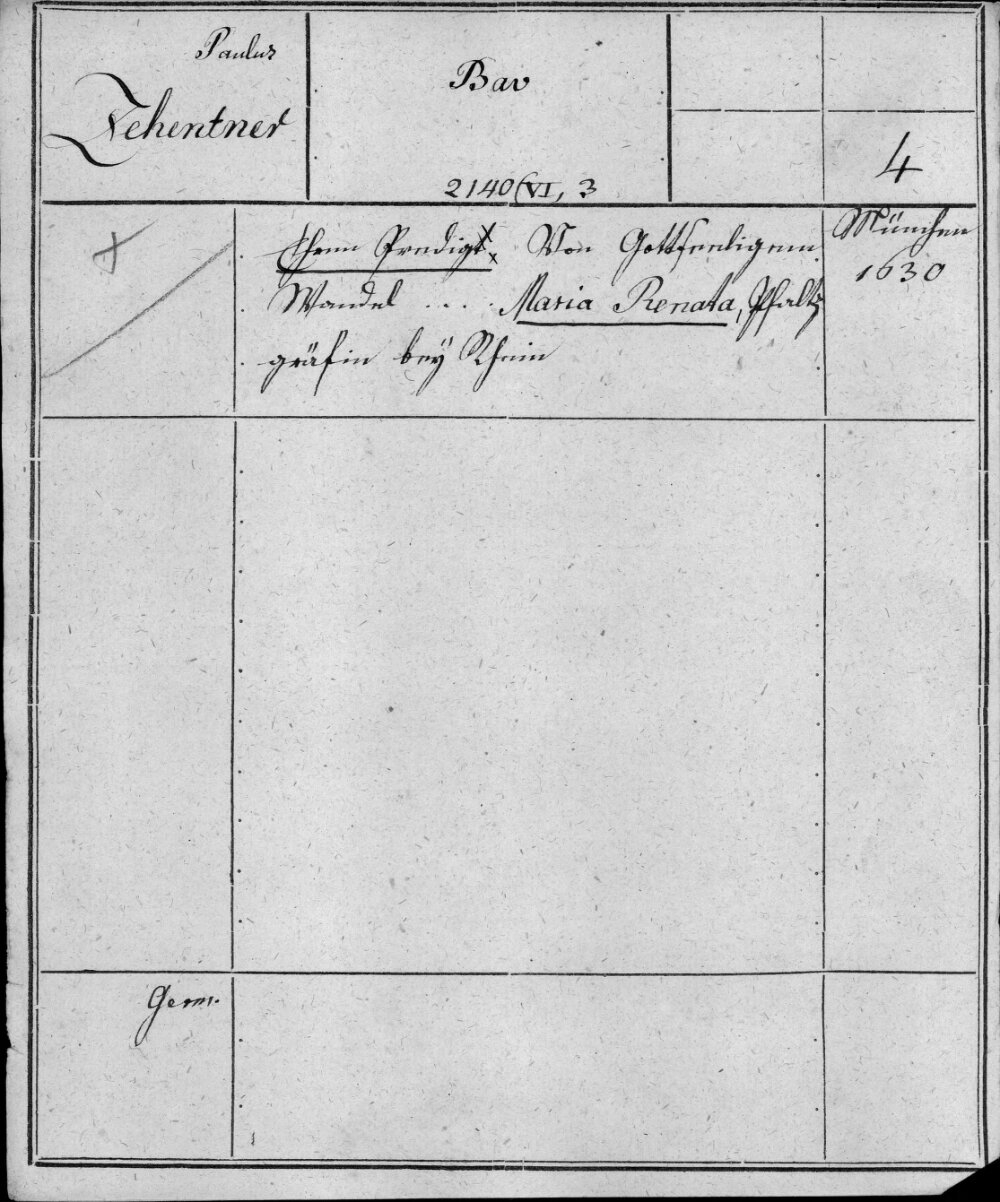 Paulus
Zehentner
Bav
2140 (VI, 3
4
Ehrn Predigt. Von Gottseeligem
Wandel .... Maria Renata, Pfaltz
gräfin bey Rhein
München
1630
Germ.